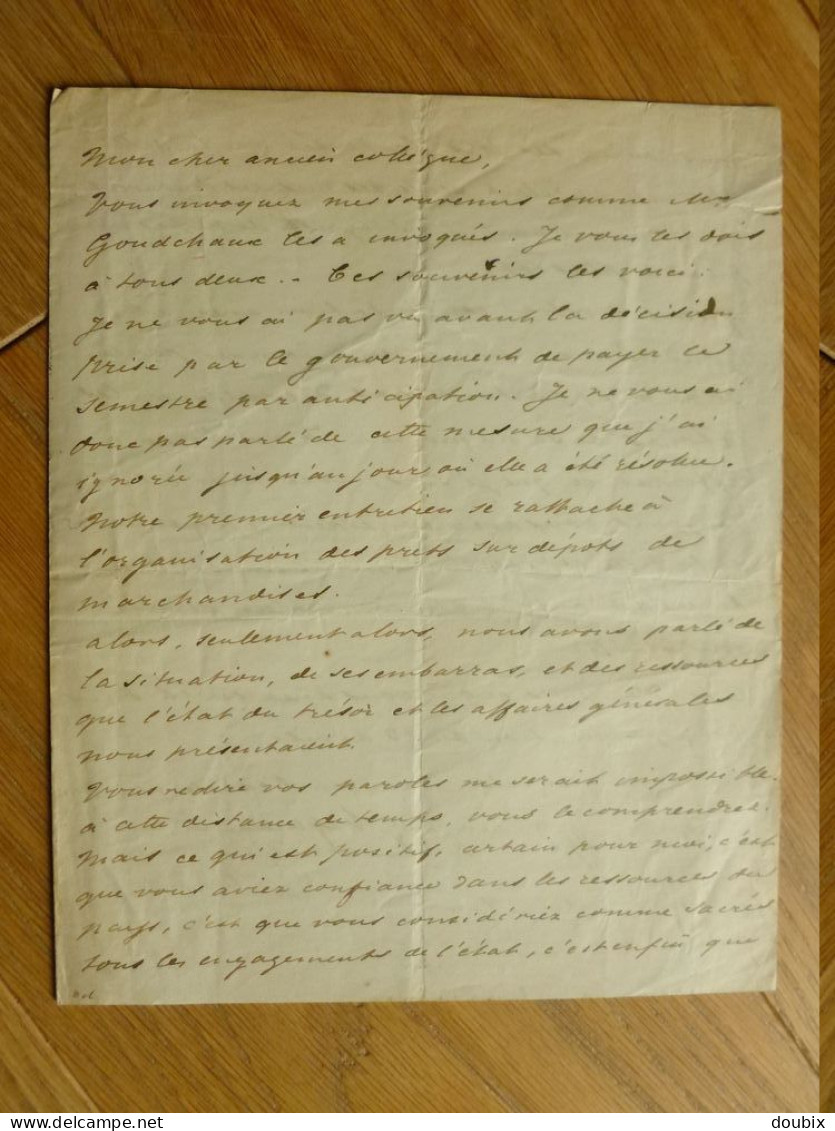 Mon cher ancien collègue,
Vous invoquez mes souvenirs comme Mr
Goudchaux les a invoqués. Je vous les dois
à tous deux. - Ces souvenirs les voici.
Je ne vous ai pas vu avant la décision
prise par le gouvernement de payer le
semestre par anticipation. Je ne vous ai
donc pas parlé de cette mesure que j'ai
ignorée jusqu'au jour où elle a été résolue.
Notre premier entretien se rattache à
l'organisation des prêts sur dépots de
marchandises.
alors, seulement alors, nous avons parlé de
la situation, de ses embarras, et des ressources
que l'état du trésor et les affaires générales
nous présentaient.
Vous redire vos paroles me serait impossible
à cette distance de temps, vous le comprendrez.
Mais ce qui est positif, certain pour moi, c'est
que vous aviez confiance dans les ressources du
pays, c'est que vous considériez comme sacrés
tous les engagements de l'état, c'est enfin que
delcampe.net
doubix